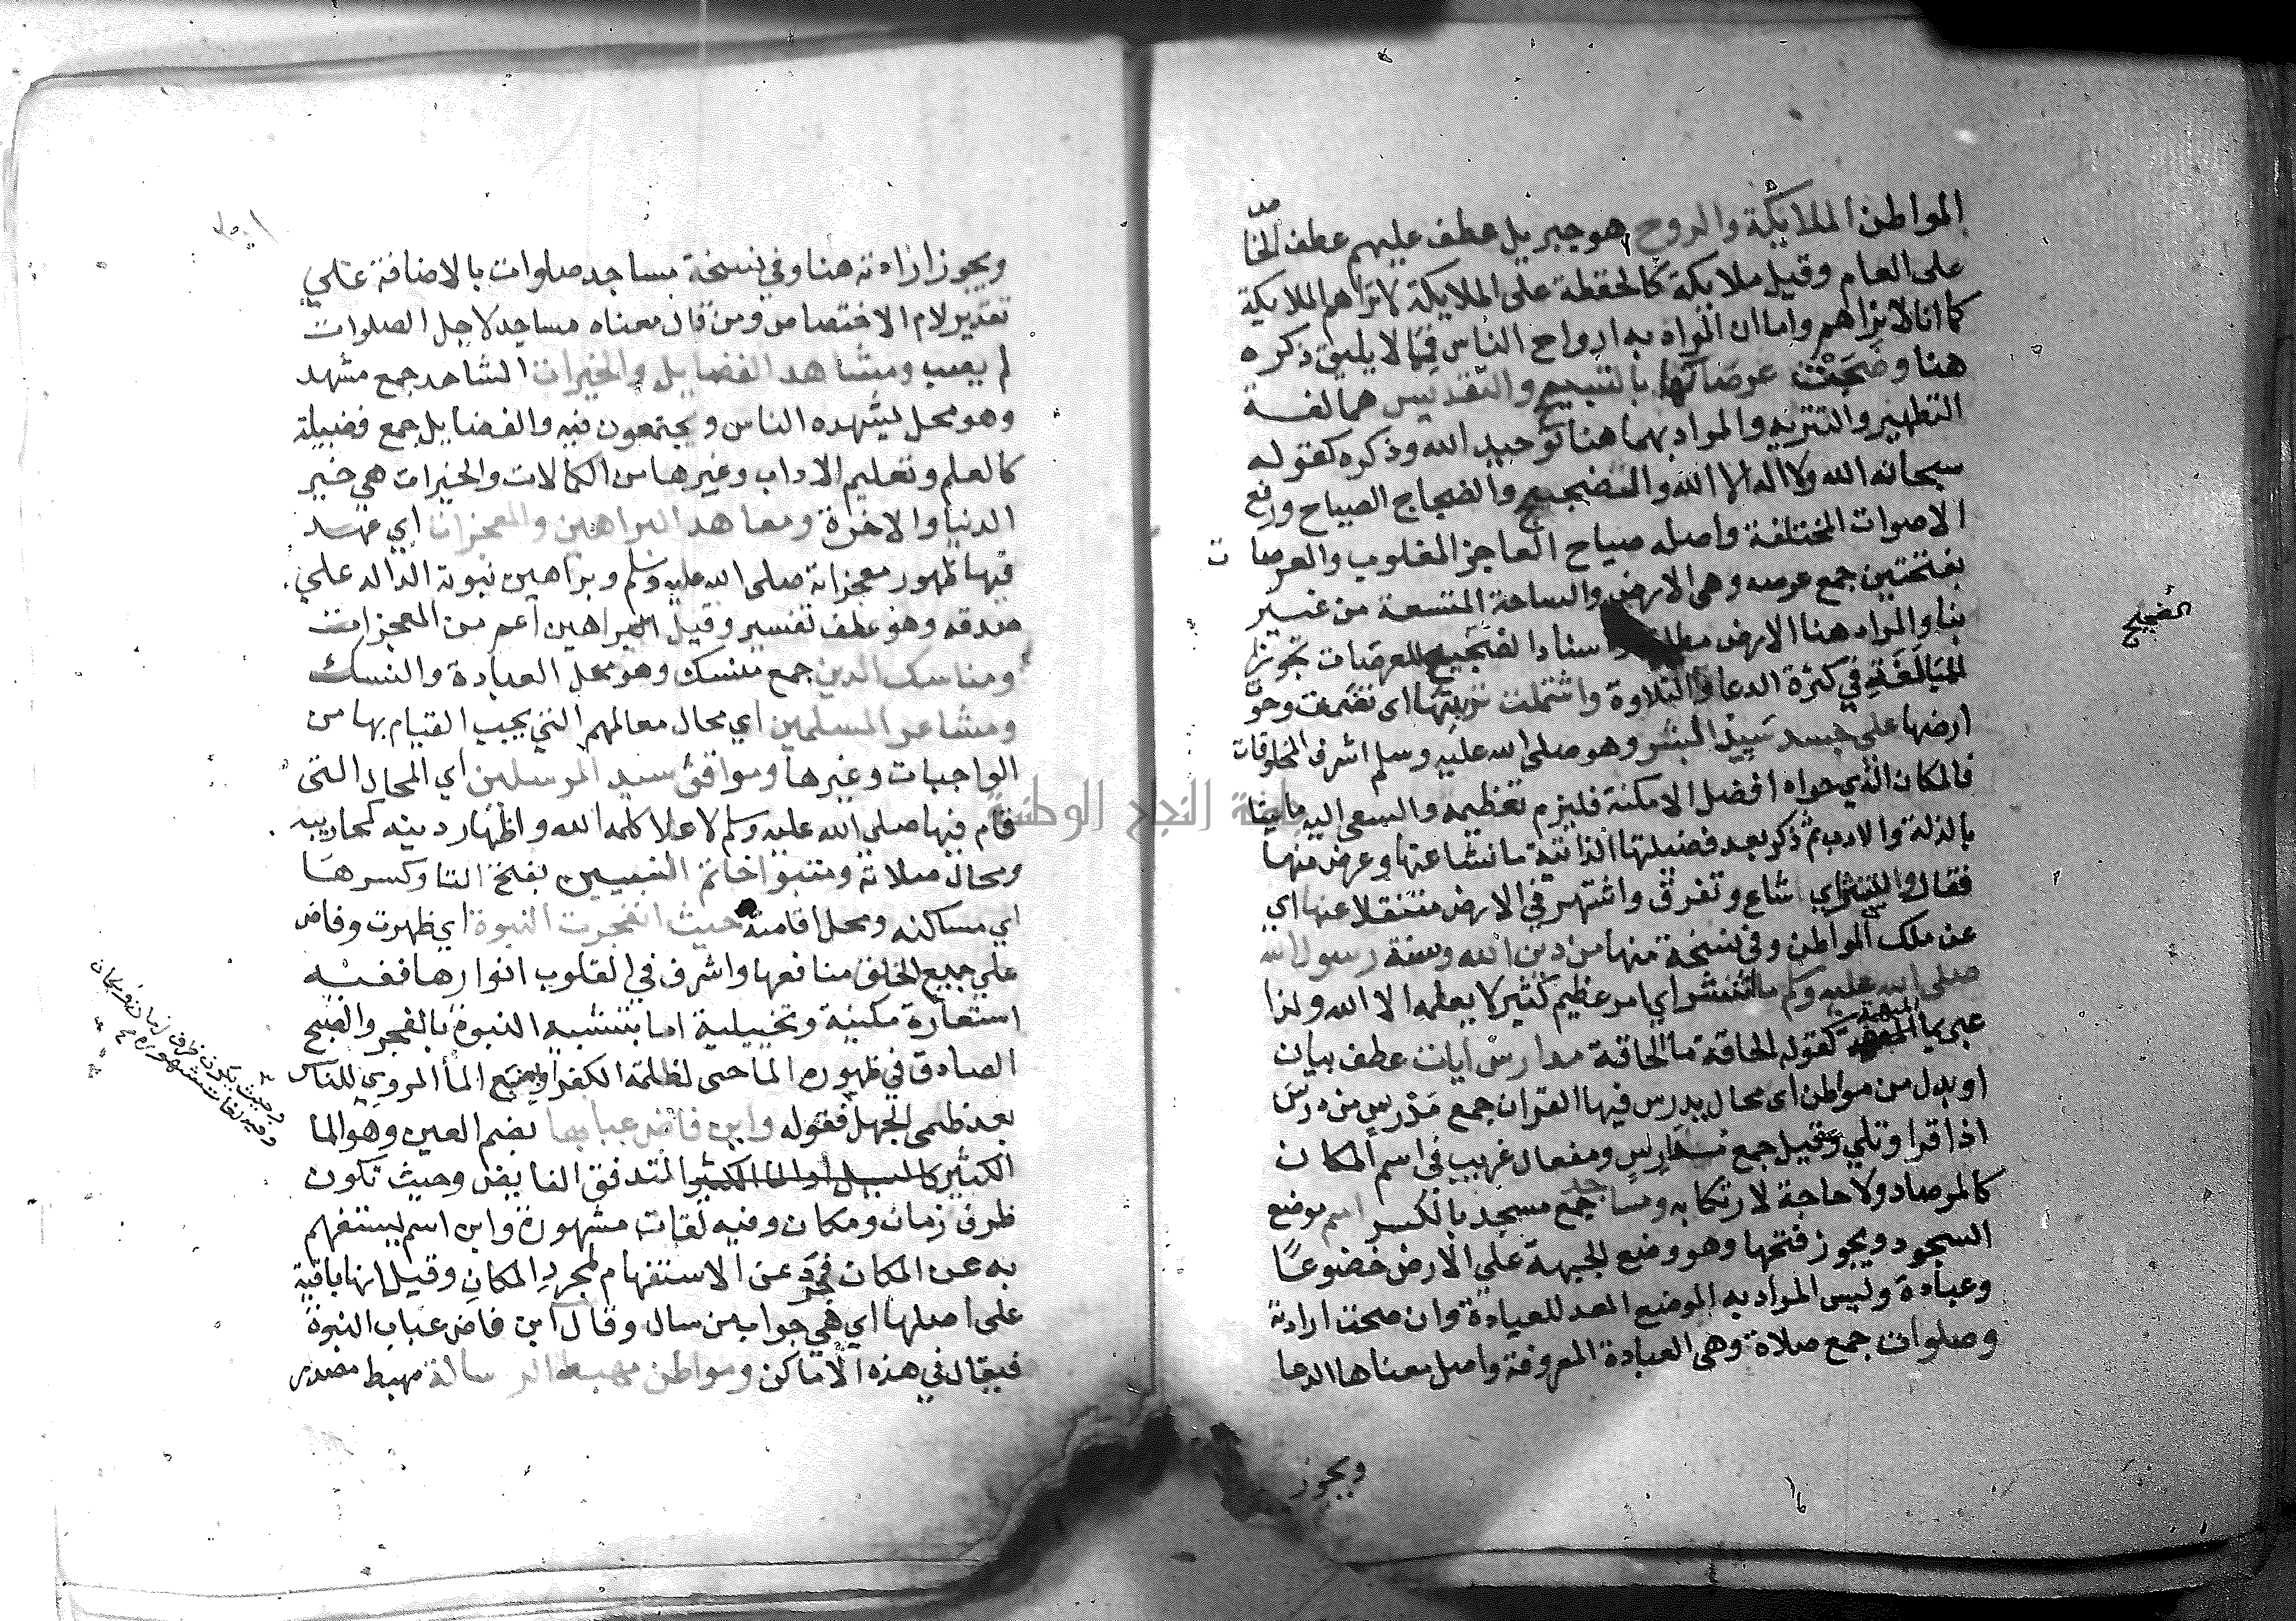 المواطن الملايكة والروح هو جبريل عطف عليهم عطف الخاص
على العام وقيل ملايكة كالحفظة على الملايكة لا تراهم الملايكة
كما انا لا نراهم واما ان المراد به ارواح الناس فمما لا يليق ذكره
هنا وضجت عرصاتها بالتسبيح والتقديس هما لغة
التطهير والتنزيه والمراد بهما هنا توحيد الله وذكره كقوله
سبحانه الله ولا اله الا الله والتضجيج والضجاج الصياح ورفع
الاصوات المختلفة واصله صياح العاجز المغلوب والعرصات
بفتحتين جمع عرصه وهى الارض والساحة المتسعة من غير
بنا والمراد هنا الارض واسناد الضجيج للعرصات تجوز
للمبالغة في كثرة الدعا والتلاوة واشتملت تربتها اى تضمنت وحوت
ارضها على جسد سيد البشر وهو صلى الله عليه وسلم اشرف المخلوقات
فالمكان الذي حواه افضل الامكنة فليزم تعظيمه والسعى اليه
بالذلة والادب ثم ذكر بعد فضيلتها الذاتية ما نشا عنها وعرض منها
فقال وانتشر اي شاع وتفرق واشتهر في الارض منتقلا عنها اي
عن ملك المواطن وفي نسخة منها من دين الله وسنة رسول الله
صلى الله عليه وسلم ما انتشر اي امر عظيم كثير لا يعلمه الا الله ولذا
عبر بما المبهمة كقوله الحاقة ما الحاقة مدارس ايات عطف بيان
او بدل من مواطن اى محال يدرس فيها القران جمع مدرس من درس
اذا قرا وتلي وقيل جمع مدارس ومفعال غريب في اسم المكان
كالمرصاد ولا حاجة لارتكابه ومساجد جمع مسجد بالكسر اسم موضع
السجود ويجوز فتحها وهو وضع الجبهة علي الارض خضوعا
وعبادة وليس المراد به الموضع المعد للعبادة وان صحت ارادته
وصلوات جمع صلاة وهى العبادة المعروفة واصل معناها الدعا
ويجوز
الضجيج
ويجوز ارادته هنا وفي نسخة مساجد صلوات بالاضافة علي
تقدير لام الاختصاص ومن قال معناه مساجد لاجل الصلوات
لم يصب ومشاهد الفضايل والخيرات المشاهد جمع مشهد
وهو محل يشهده الناس ويجتمعون فيه والفضايل جمع فضيلة
كالعلم وتعليم الاداب وغيرها من الكمالات والخيرات هي خير
الدنيا والاخرة ومعاهد البراهين والمعجزات اي عهد
فيها ظهور معجزاته صلى الله عليه وسلم وبراهين نبوته الداله علي
صدقه وهو عطف تفسير وقيل البراهين اعم من المعجزات
ومناسك الدين جمع منسك وهو محل العبادة والنسك
ومشاعر المسلمين اي محال معالمهم التي يجب القيام بها من
الواجبات وغيرها ومواقف سيد المرسلين اي المحال التى
قام فيها صلى الله عليه وسلم لاعلا كلمه الله واظهار دينه كمحاريبه
ومحال صلاته ومتبوا خاتم النبيين بفتح التا وكسرها
اي مساكنه ومحل اقامته حيث انفجرت النبوة اي ظهرت وفاض
علي جميع الخلق منافعها واشرف في القلوب انوارها ففيه
استعارة مكنية وتخييلية اما بتشبيه النبوة بالفجر والصبح
الصادق في ظهوره الماحى لظلمة الكفر او بنبع الما المروي للناس
بعد ظمى الجهل فقوله واين فاض عبابها بضم العين وهو الما
الكثير كالسيل او الما الكثير المتدفق الفايض وحيث تكون
ظرف زمان ومكان وفيه لغات مشهورة واين اسم يستفهم
به عن المكان فجرد عن الاستفهام لمجرد المكان وقيل انها باقية
على اصلها اي هي جواب من سال وقال اين فاض عباب النبوة
فيقال في هذه الاماكن ومواطن مهبط الرسالة مهبط مصدر
وحيث تكون ظرف زمان ومكان
وفيه لغات مشهورة